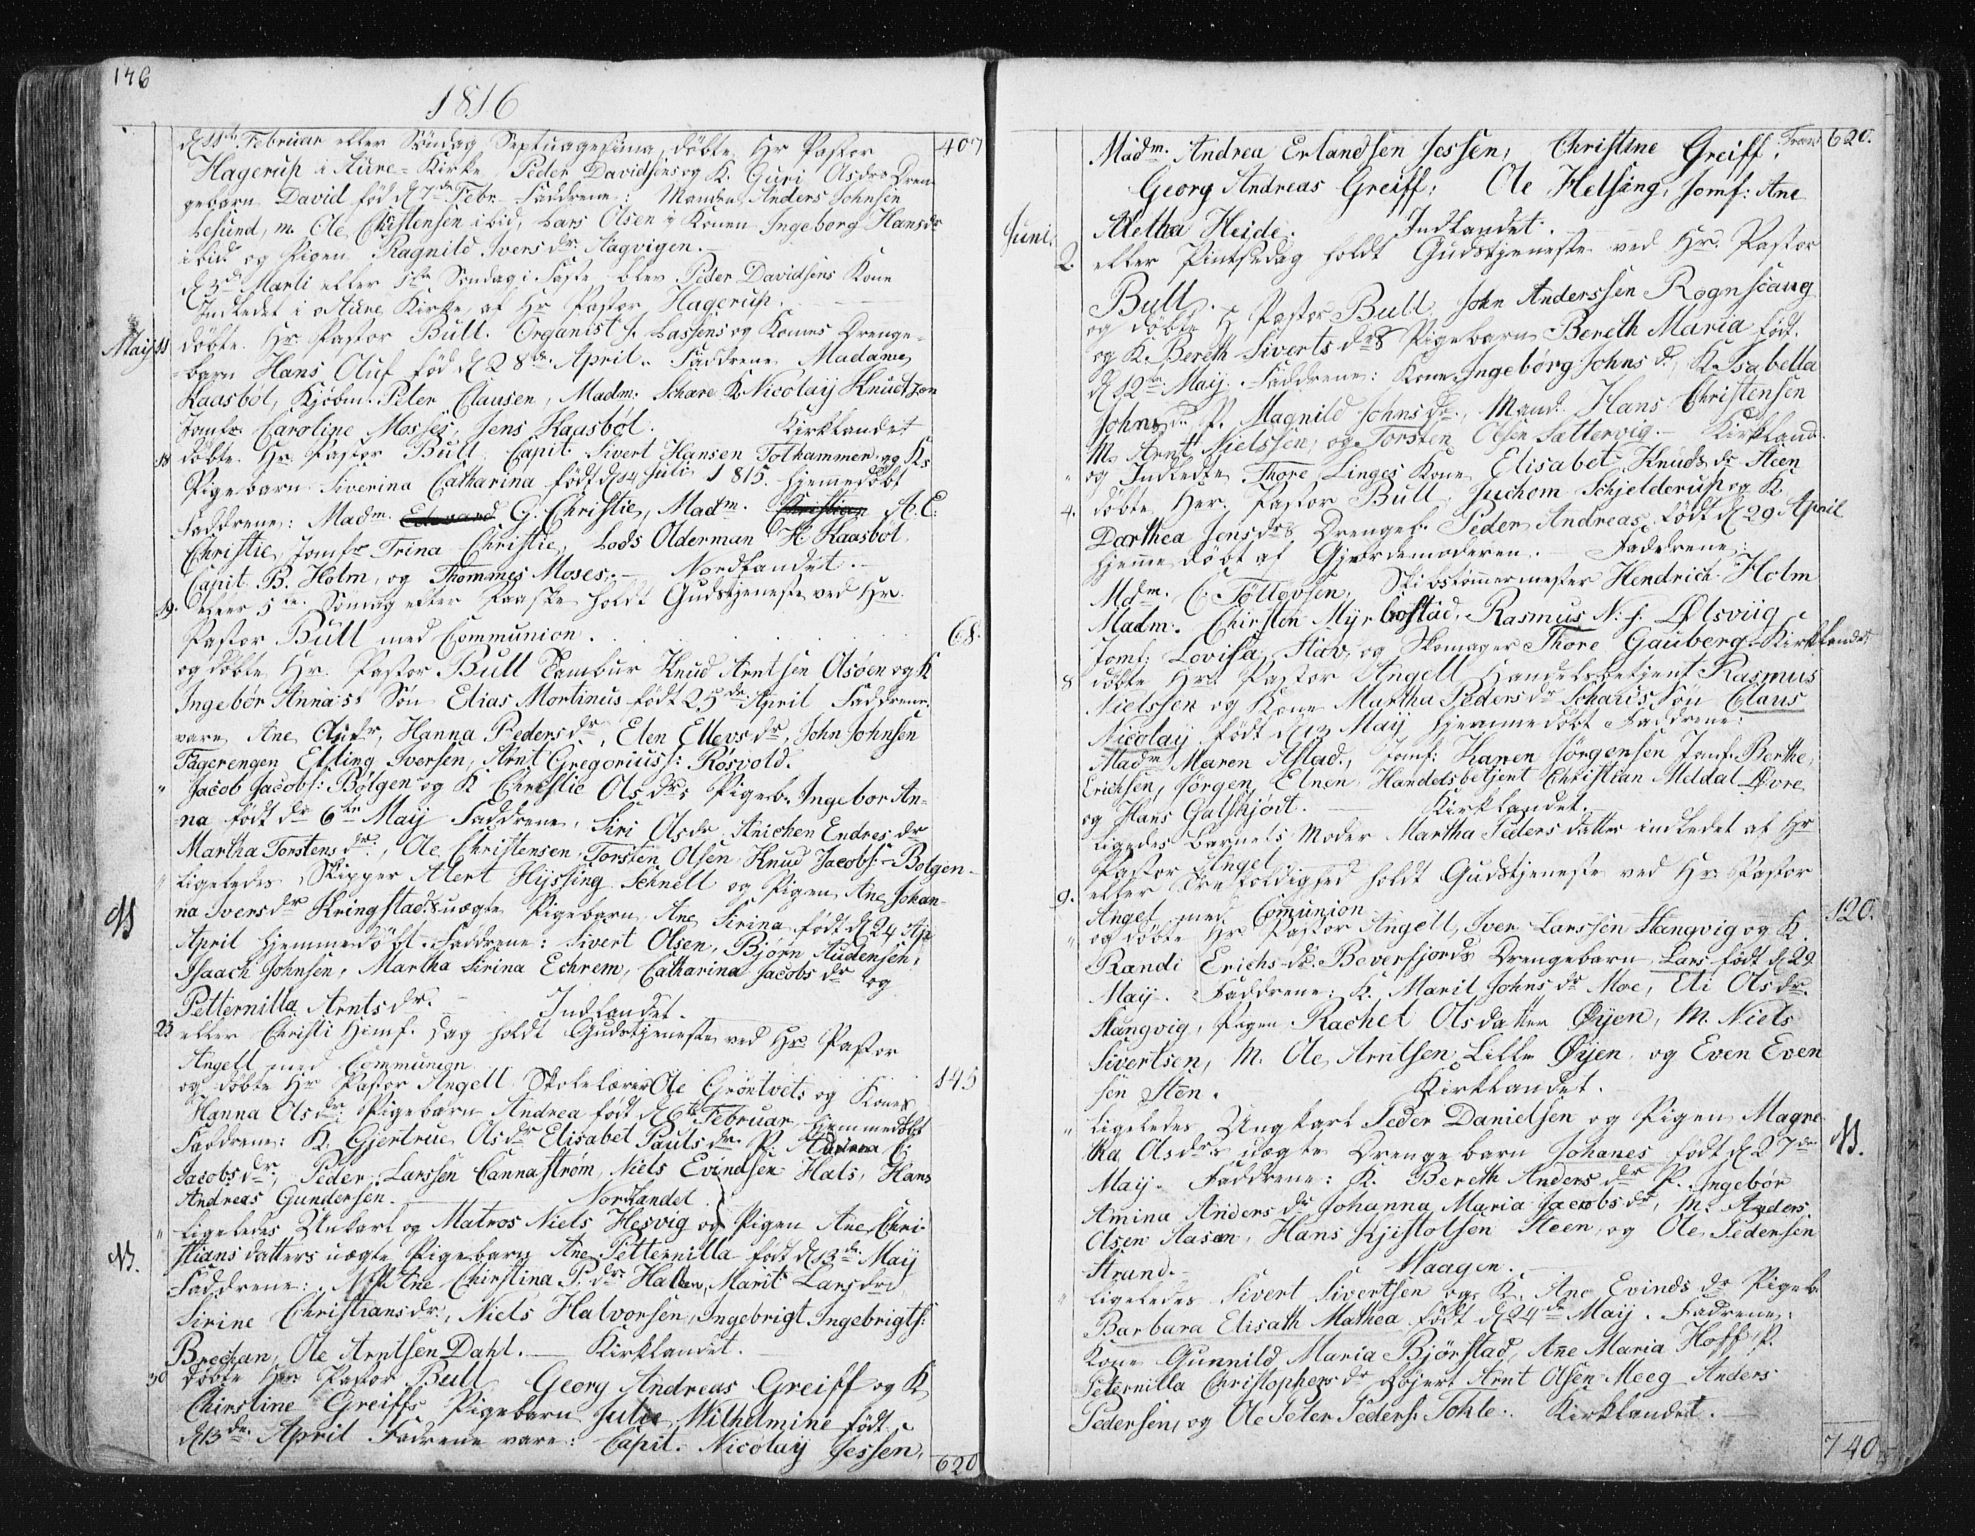 146
1816
d 11te Februar eller Söndag Septuagesima, döbte Hr Pastor 407
Hagerup i Aure-Kirke Peder Davidsens og K. Guri Olsdrs Dren-
gebarn David föd d 7de Febr. Faddrene: Manden Anders Johnsen
Lesund, m. Ole Christensen ibid, Lars Olsen, Konen Ingeborg Hansdr
ibid og Pigen Ragnild Iversdr Aagvigen.
d 3de Marti eller 1ste Söndag i Faste blev Peder Davidsens Kone
Indledet i Aure Kirke af Hr Pastor Hagerup.
Maij 11 döbte Hr. Pastor Bull. Organist H. Lassens og Kones Drenge-
barn Hans Oluf föd d 28de April. Faddrene Madame
Kaasböl, Kjöbm. Peter Clausen, Madm: Schare K Nicolay Knudtzon
Jomfr. Caroline Moses, Jens Kaasböl. Kirklandet
18 döbte Hr. Pastor Bull Capit. Sivert Hansen Tothammer og Ks
Pigebarn Siverina Catharina födt d 14 Juli 1815. hjemedöbt
Faddrene: Madm. G. Christie, Madm. A. C.
Christie, Jomfr Trina Christie, Lods Olderman H Kaasböl,
Capit B. Holm, og Thommes Moses. Nordlandet.
19. eller 5te Söndag efter Paaske holdt Gudstjeneste ved Hr.
Pastor Bull med Communion. 68.
og döbte Hr. Pastor Bull Tambur Knud Arntsen Olsöen og K
Ingebör Anna's Sön Elias Mortinus födt 25de April Faddrene
vare Ane Olsdr, Hanna Pedersdr, Elen Ellevsdr, John Johnsen
Fagerengen Elling Iversen, Arnt Gregoriuss: Rösvold.
" Jacob Jacobs: Bölgen og K Christie Olsdrs Pigeb. Ingebor An-
na födt de 6te Maij Faddrene, Siri Olsdr Anichen Endresdr
Martha Torstensdr, Ole Christensen, Torsten Olsen Knud Jacobs: Bolgen
" ligeledes Skipper Alert Hyssing Schnell og Pigen Ane Johan-
na Iversdr Kringstads uægte Pigebarn Ane Sirina födt d 24 Ap
April hjemmedöbt. Faddrene: Sivert Olsen, Björn Audensen,
Isaach Johnsen, Martha Sirina Echrem, Catharina Jacobsdr og
Petternilla Arntsdr. Indlandet.
23 eller Christi Himf. Dag holdt Gudstjeneste ved Hr Pastor
Angell med Communion 145
og döbte Hr Pastor Angell Skolelærer Ole Gröntvets og Kones
Hanna Olsdr Pigebarn Andrea födt d 6te Februar hjemmedöbt
Faddrene: K. Gjertrue Olsdr Elisabet Paulsdr. P.
Jacobsdr, Peder Larssen Cannaström, Niels Evindsen Hals, Hans
Andreas Gundersen. Nordlandet
" ligeledes Unkarl og Matros Niels Hesvig og Pigen Ane Chri-
stians datters uægte Pigebarn Ane Petternilla födt d 13de Maij
Faddrene: Ane Christina P.dr Hallen, Marit Larsdr
Sirine Christiansdr, Niels Halvorsen, Ingebrigt Ingebrigts:
Brechan, Ole Arntsen Dahl. Kirklandet.
30 döbte Her Pastor Bull Georg Andreas Greiff og K
Christine Greiffs Pigebarn Julie Wilhelmine födt
d 13de April Fadrene vare: Capit. Nicolay Jessen, 620
Madm. Andrea Erlandsen Jessen, Christine Greiff, Trans 620.
Georg Andreas Greiff, Ole Helsing, Jomf: Ane
Aletha Heide. Indlandet.
Juni 2. eller Pintsedag holdt Gudstjeneste ved Hr. Pastor
Bull.
og döbte H Pastor Bull John Anderssen Rognscaug
og K Bereth Sivertsdrs Pigebarn Bereth Maria födt.
d 12te Maij. Faddrene: Kone Ingebörg Johnsdr, K. Isabella
Johnsdr P. Magnild Johnsdr, Mand. Hans Christensen
M. Arnt Nielssen, og Torsten Olsen Sættervig. Kirkland.
" og Indledte Thore Linges Kone Elisabet Knudsdr Steen
4. döbte Her. Pastor Bull Juchom Schjelderup og K
Darthea Jensdrs Drengeb. Peder Andreas, födt d 29 April
hjemme döbt af Gjordemoderen. Faddrene:
Mdm. C. Töllevsen. Skibstömmermester Hendrich Holm
Madm. Chirsten Myrbostad, Rasmus N: s. Ölsviig
Jomf. Lovisa Hav, og Skomager Thore Gauberg. Kirklandet
8 döbte Hr. Pastor Angell Handelsbetjent Rasmus
Nielssen og Kone Martha Pedersdr Scharis Sön Claus
Nicolay födt d 13 Maij hjemmedöbt Faddrene:
Madm Maren Astad, Jomf: Karen Jörgensen Jomf Berthe
Erichsen, Jörgen Elnen Handelsbetjent Christian Meldal Övre
og Hans Galskjödt. Kirklandet.
ligedes barnets Moder Martha Peders datter indledet af Hr
Pastor Angel.
9. eller Trefoldighed holdt Gudstjeneste ved Hr. Pastor
Angel med Comunion 120.
" og döbte Hr Pastor Angell, Iver Larssen Stangvig og K.
Randi Erichsdr. Beverfjords Drengebarn Lars födt d 29
Maij. Faddrene: K. Marit Johnsdr Moe, Eli Olsdr.
Stangvig, Pigen Rachel Olsdatter Öyen, M. Niels
Sivertsen, M. Ole Arntsen Lille Öyen og Even Even
sen Sten. Kirklandet.
" ligeledes Ungkarl Peder Danielsen og Pigen Magre-
tha Olsdrs uægte Drengebarn Johanes födt d 27de
Maij. Faddrene: K. Bereth Andersdr P. Ingebör
Amina Andersdr Johanna Maria Jacobsdr, M. Anders
Olsen Aasan, Hans Kjistolsen Steen, og Ole Pedersen
Strand. Vaagen.
" ligeledes Sivert Sivertsen og K. Ane Evindsdr Pigeb.
Barbara Elisath Mathea födt d 24de Maij. Fadrene:
Kone Gunnild Maria Björstad, Ane Maria Hoff, P.
Peternilla Christophersdr Arnt Olsen Meeg Anders
Pedersen, og Ole Peter Peders: Tohle. Kirklandet.
740